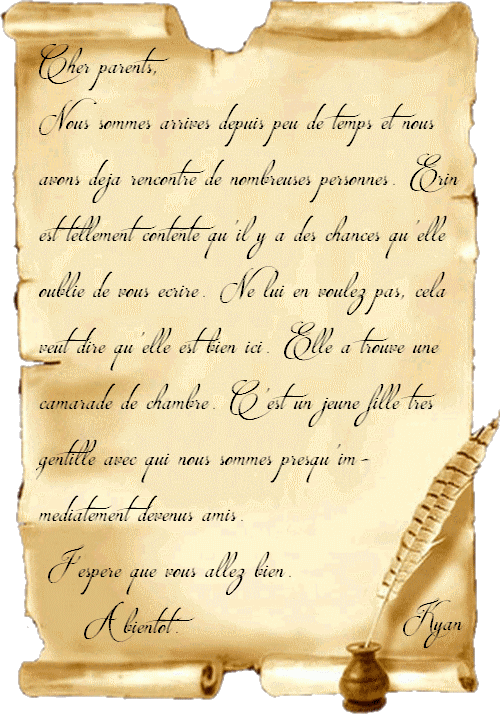 Cher parents,
Nous sommes arrives depuis peu de temps et nous
avons deja rencontre de nombreuses personnes. Erin
est tellement contente qu'il y a des chances qu'elle
oublie de vous ecrire. Ne lui en voulez pas, cela
veut dire qu'elle est bien ici. Elle a trouve une
camarade de chambre. C'est un jeune fille tres
gentille avec qui nous sommes presqu'im-
mediatement devenus amis.
J'espere que vous allez bien.
A bientot. Kyan